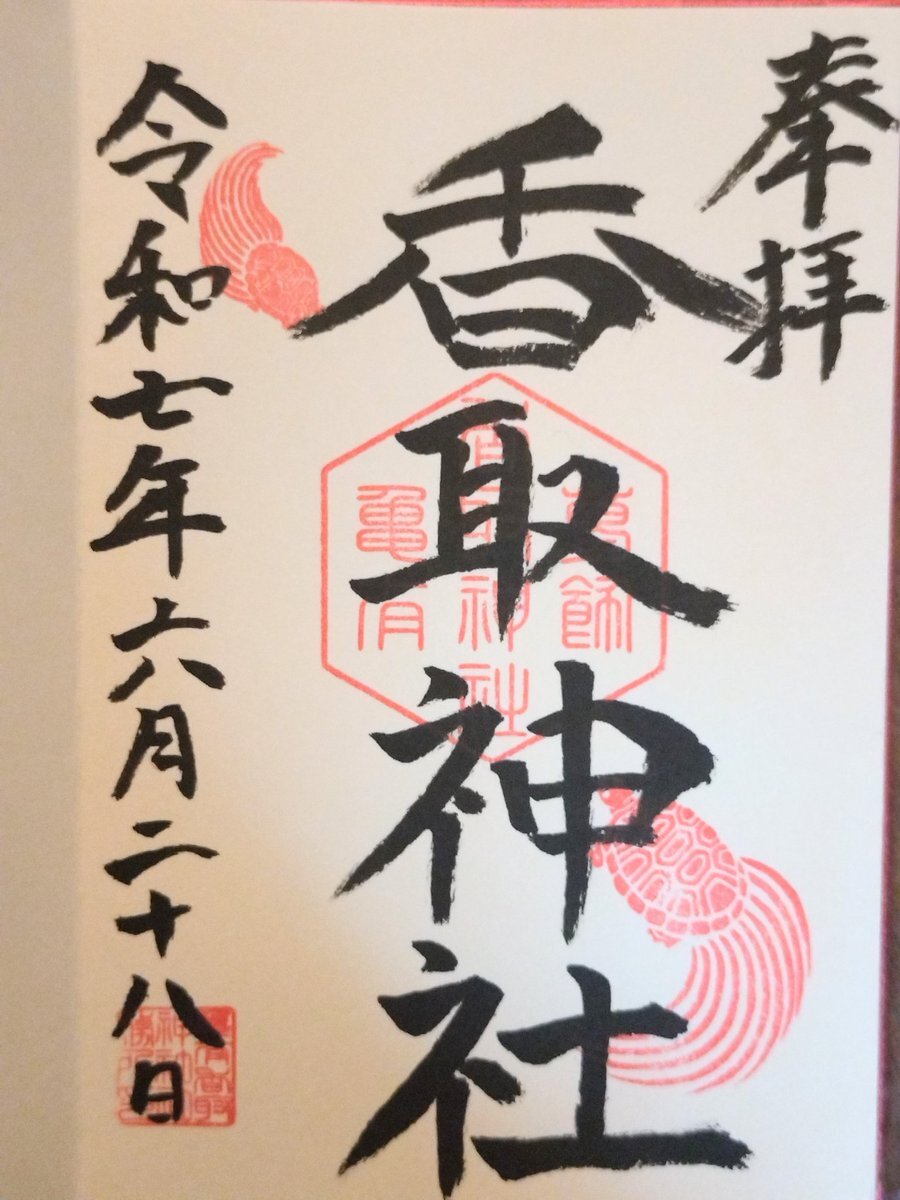 奉拝
香取神社
葛飾
香取神社
亀有
令和七年六月二十八日